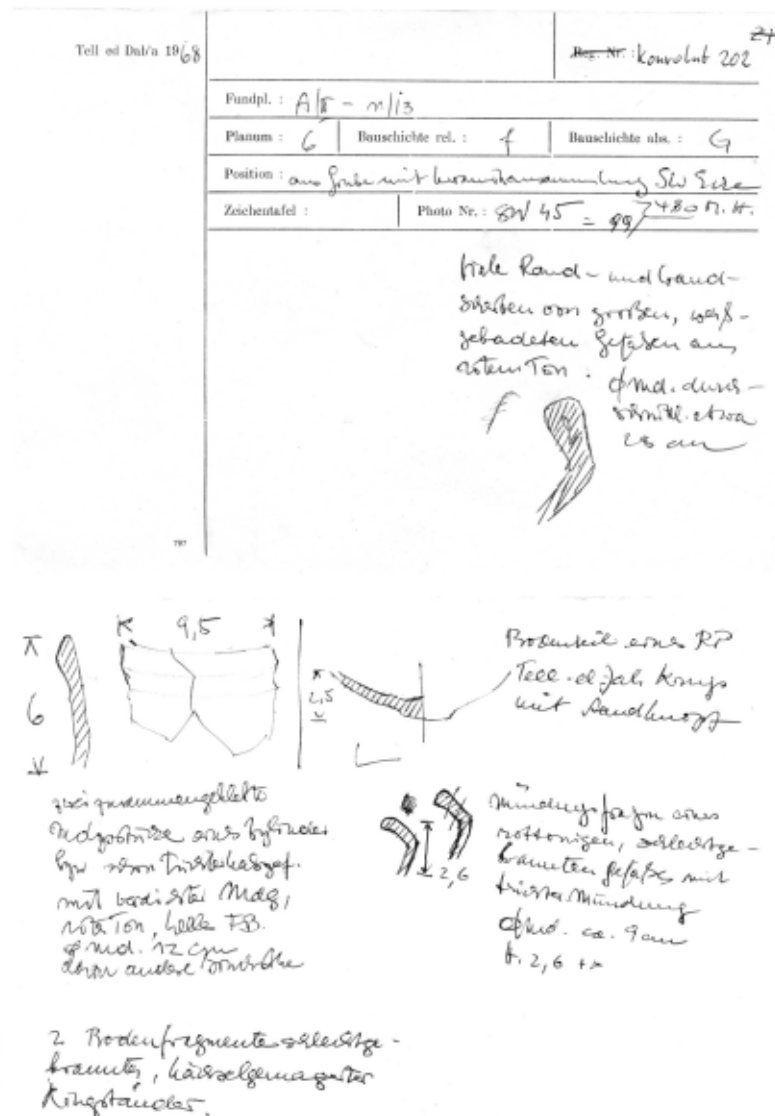 Tell ed Dab'a 1968
Reg. Nr. : Konvolut 202
Fundpl. : A/II - n/13
Planum : 6 Bauschichte rel. : f Bauschichte abs. : G
Position : aus Grube mit Keramikansammlung SW Ecke
Zeichentafel : Photo Nr. : SW 45 = 99/7480 M. H.
Viele Rand- und Wand-
scherben von großen, weiß-
gebadeten Gefäßen aus
rotem Ton.
ø Md. durch-
schnittl. etwa
28 cm
797
9,5
6
2,5
Bodenteil eines RP
Tell-el-Jah. Krugs
mit Standknopf
zwei zusammengeklebte
eines Zylinder
bzw.
mit verdickter Mdg,
roter Ton, helle FB.
ø Md. 12 cm
davon andere Bruchstücke
2,6
Mündungsfragm. eines
rottonigen, schlechtge-
brannten Gefäßes mit
Mündung
ø Md. ca. 9 cm
H. 2,6 + x
2 Bodenfragmente schlechtge-
brannter, häckselgemagerter
Ringständer.